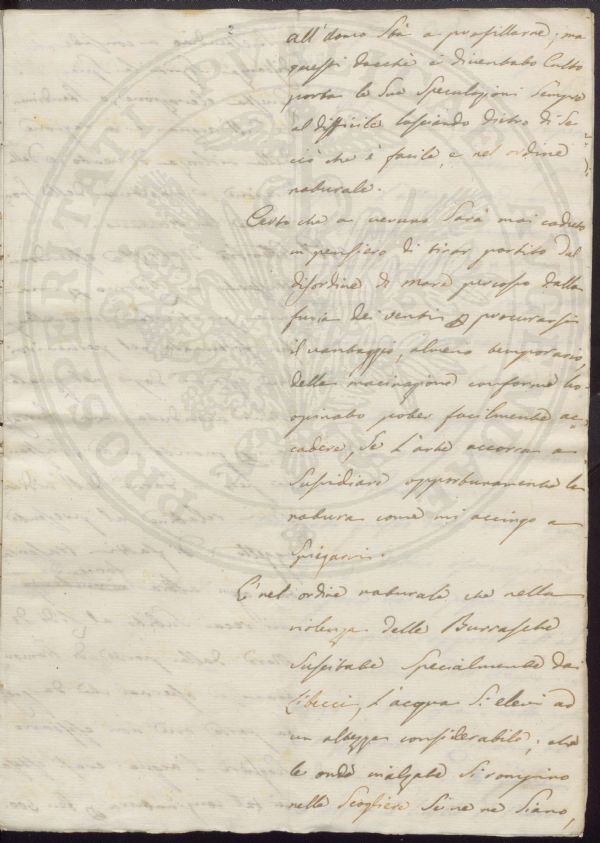 all'uomo Stà a profittarne; ma
questi dacchè è diventato Culto
porta le Sue Speculazioni Sempre
al difficile lasciando dietro di Se
ciò che è facile, e nel ordine
naturale.
Certo che a veruno Sarà mai caduto
in pensiero di tirar partito dal
disordine di mare percosso dalla
furia dei venti procurarsi
il vantaggio, almeno temporario,
della macinazione conforme ho
opinato poter facilmente ac-
cadere, Se l'arte accorra a
Sussidiare opportunamente la
natura come mi accingo a
Spiegarvi.
È nel ordine naturale che nella
violenza delle Burrasche
Suscitate Specialmente dai
Libicci, l'acqua Si elevi ad
un altezza considerabile; che
le onde inalzate Si rompino
nelle Scogliere Se ne Siano,
PROSPERITATI